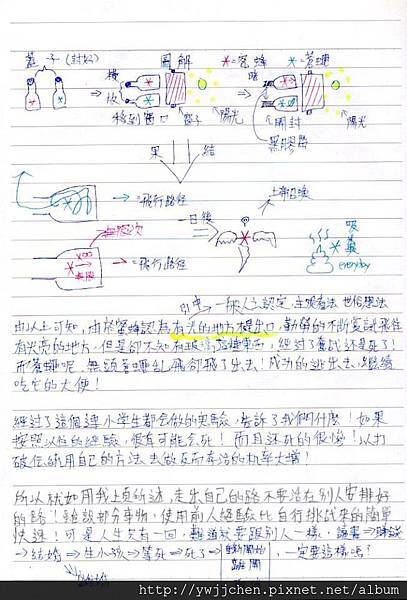 蓋子(封好)
圖解
✶=蜜蜂 ✶=蒼蠅
橫放
移到窗口
窗子
陽光
暗
開封
陽光
黑膠膜
結果
⇒飛行路徑
無限次
⇒飛行路徑
一日後
上帝召喚
吸糞
everyday
由以上可知,由於蜜蜂認為有光的地方才是出口,勤奮的不斷嘗試飛往
有光亮的地方,但是卻不知
經過了嘗試還是死了!
而蒼蠅呢,無頭蒼蠅亂飛卻飛了出去!成功的逃出去,繼續
吃它的大便!
經過了這個連小學生都會做的實驗,告訴了我們什麼!如果
按照以往的經驗,很有可能會死!而且還死的很慘!以力
破任何用自己的方法去做反而存活的机率大增!
所以就如同我上頁所述,走出自己的路不要活在別人安排好
的路!雖說部分事物,使用前人經驗比自行挑試來的簡單
快速!可是人生只有一回,難道就要跟別人一樣,讀書⇒賺錢
⇒結婚⇒生小孩⇒等死⇒死了⇒,一定要這樣嗎?
http://ywjjchen.pixnet.net/album